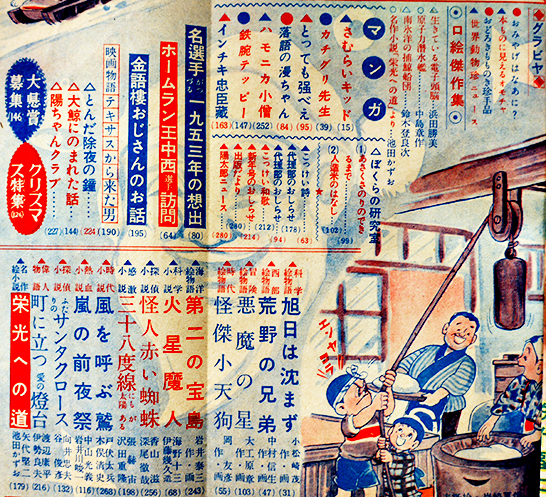 ◆グラビヤ◆
おみやげはなあに?
★本ものに見えるオモチャ
●おどろきもものき珍手品
▲世界動物珍ニュース
◆口絵傑作集◆
○生きている電子頭脳…浜田勝美
○原子力潜水艦…中島章作
△南氷洋の捕鯨船団…鈴木登良次
○名作小説「栄光への道」より…池田かずお
マンガ
▲さむらいキッド(15)
●カチグリ先生(39)
▲とっても強べえ(95)
●落語の漫ちゃん(84)
▲ハモニカ小僧(252)
●鉄腕テッピー(147)
▲インチキ忠臣蔵(163)
△ぼくらの研究室
(1)あさくさのりのできるまで(99)
(2)人造米のはなし(102)
▲こっけい詩(63)
▲代理部のおしらせ(94)
▲代理部のおしらせ(178)
▲こっけい和歌(212)
▲新年号のおしらせ(214)
▲出版だより(280)
▲陽太郎ニュース(280)
名選手がつづる一九五三年の想出(80)
ホームラン王中西選手訪問(64)
金語樓おじさんのお話(195)
映画物語テキサスから来た男(190)
△とんだ除夜の鐘(224)
▲大鯨にのまれた話(144)
▲陽ちゃんクラブ(227)
大懸賞募集(146)
クリスマス特集(224)
エンヤラヤ
科学絵物語 旭日は沈まず 小松崎茂(31)
西部絵物語 荒野の兄弟 中村信生(47)
冒険物語 悪魔の星 大工原章(103)
時代絵物語 怪傑小天狗 岡友彦・作(55)
海洋絵物語 第二の宝島 岩井泰三(243)
科学小説 火星魔人 海野十三・作(68)
探偵小説 怪人赤い蜘蛛
感激小説 三十八度線にも太陽がある
時代小説 風を呼ぶ鷲
熱血小説 嵐の前夜祭
探偵小説 ふたりのサンタクロース
偉人物語 町に立つ愛の燈台
名作絵小説 栄光への道 池田かずお(179)